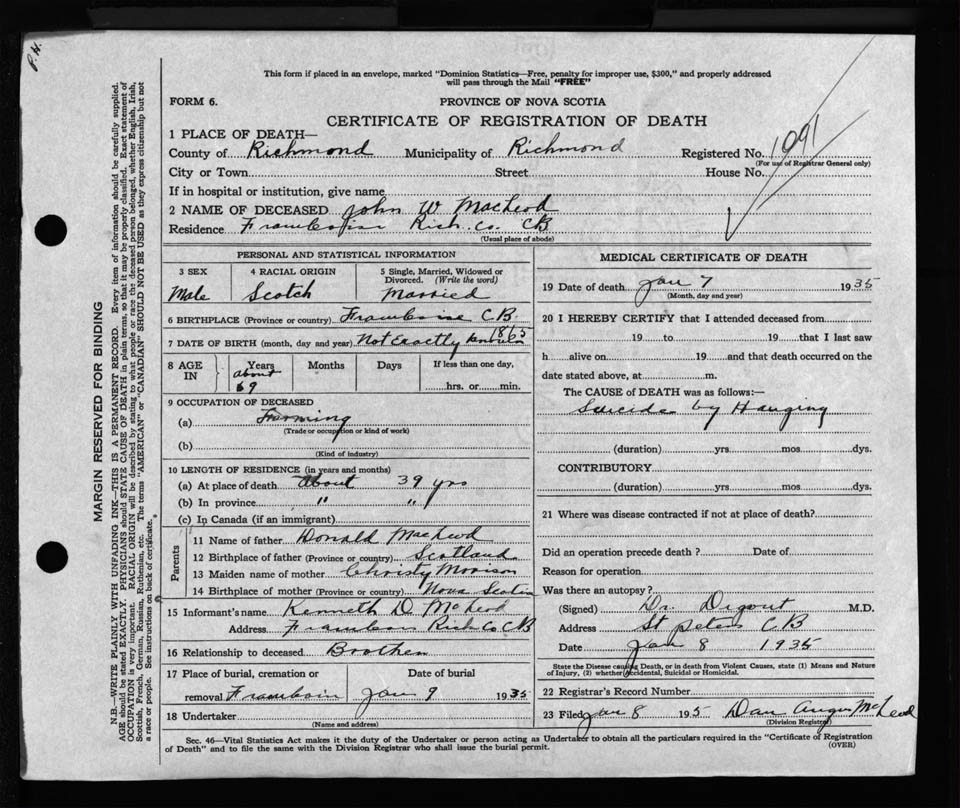 P.H.
This form if placed in an envelope, marked "Dominion Statistics—Free, penalty for improper use, $300," and properly addressed
will pass through the Mail "FREE"
FORM 6.
PROVINCE OF NOVA SCOTIA
CERTIFICATE OF REGISTRATION OF DEATH
1 PLACE OF DEATH—
County of Richmond Municipality of Richmond Registered No. 1091
(For use of Registrar General only)
City or Town Street House No.
If in hospital or institution, give name
2 NAME OF DECEASED John W MacLeod
Residence Rich. Co. CB
(Usual place of abode)
PERSONAL AND STATISTICAL INFORMATION
3 SEX 4 RACIAL ORIGIN 5 Single, Married, Widowed or
Divorced. (Write the word)
Male Scotch Married
6 BIRTHPLACE (Province or country) Framboise C B
7 DATE OF BIRTH (month, day and year) Not Exactly 1865
8 AGE IN Years Months Days If less than one day,
about
69 hrs. or min.
9 OCCUPATION OF DECEASED
(a) Farming
(Trade or occupation or kind of work)
(b)
(Kind of industry)
10 LENGTH OF RESIDENCE (in years and months)
(a) At place of death about 39 yrs
(b) In province " "
(c) In Canada (if an immigrant)
Parents
11 Name of father Donald MacLeod
12 Birthplace of father (Province or country) Scotland
13 Maiden name of mother Christy Morrison
14 Birthplace of mother (Province or country) Nova Scotia
15 Informant's name Kenneth D McLeod
Address Rich Co CB
16 Relationship to deceased Brother
17 Place of burial, cremation or Date of burial
removal Jan 9 1935
18 Undertaker
(Name and address)
MEDICAL CERTIFICATE OF DEATH
19 Date of death Jan 7 1935
(Month, day and year)
20 I HEREBY CERTIFY that I attended deceased from
19 to 19 that I last saw
h alive on 19 and that death occurred on the
date stated above, at m.
The CAUSE of DEATH was as follows:
Suicide by Hanging
(duration) yrs mos dys.
CONTRIBUTORY
(duration) yrs mos dys.
21 Where was disease contracted if not at place of death?
Did an operation precede death? Date of
Reason for operation
Was there an autopsy?
(Signed) Dr. Digout M.D.
Address St peters C B
Date Jan 8 1935
State the Disease causing Death, or in death from Violent Causes, state (1) Means and Nature
of Injury, (2) whether Accidental, Suicidal or Homicidal.
22 Registrar's Record Number
23 Filed Jan 8 1935 Dan Angus McLeod
(Division Registrar)
Sec. 46—Vital Statistics Act makes it the duty of the Undertaker or person acting as Undertaker to obtain all the particulars required in the "Certificate of Registration
of Death" and to file the same with the Division Registrar who shall issue the burial permit.
(OVER)
MARGIN RESERVED FOR BINDING
N.B.—WRITE PLAINLY WITH UNFADING INK—THIS IS A PERMANENT RECORD. Every item of information should be carefully supplied.
AGE should be stated EXACTLY. PHYSICIANS should STATE CAUSE OF DEATH in plain terms, so that it may be properly classified. Exact statement of
OCCUPATION is very important. RACIAL ORIGIN will be described by stating to what people or race the deceased person belonged, whether English, Irish,
Scottish, French, German, Russian, Ruthenian, etc. The terms "AMERICAN" or "CANADIAN" SHOULD NOT BE USED as they express citizenship but not
a race or people. See instructions on back of certificate.